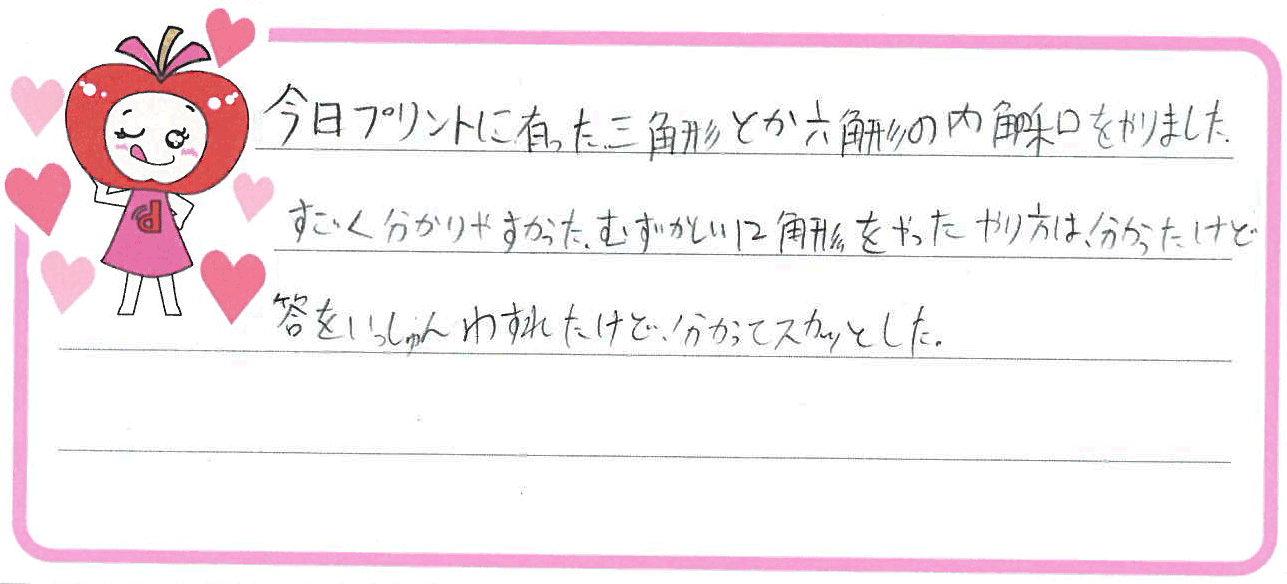 今日プリントに有った、三角形とか六角形の内角和をやりました。
すごく分かりやすかった、むずかしい12角形をやったやり方は、分かったけど
答をいっしゅんわすれたけど、分かってスカッとした。